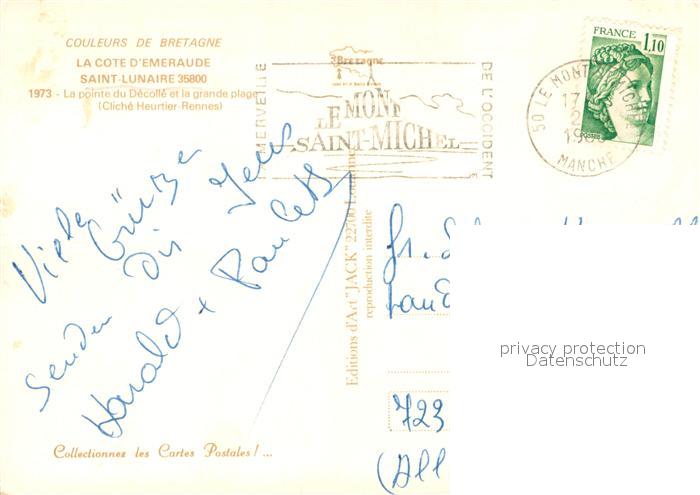 COULEURS DE BRETAGNE
LA COTE D'EMERAUDE
SAINT-LUNAIRE 35800
1973 - La pointe du Décollé et la grande plage
(Cliché Heurtier-Rennes)
Bretagne
MERVEILLE
LE MONT
SAINT-MICHEL
DE L'OCCIDENT
FRANCE
1,10
50 LE MONT
MANCHE
Viele Grüße
senden Dir
Harald +
Editions d'Art "JACK" 22700
reproduction interdite
Fr.
723
(All
privacy protection
Datenschutz
Collectionnez les Cartes Postales ! ...